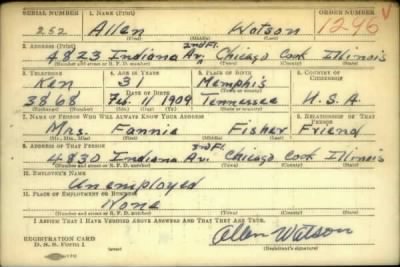 SERIAL NUMBER 1. NAME (Print) ORDER NUMBER
252 Allen Watson 1296 V
(First) (Middle) (Last)
2. ADDRESS (Print) 2nd Fl.
4823 Indiana Av. Chicago Cook Illinois
(Number and street or R. F. D. number) (Town) (County) (State)
3. TELEPHONE 4. AGE IN YEARS 5. PLACE OF BIRTH 6. COUNTRY OF CITIZENSHIP
Ken 31 Memphis
DATE OF BIRTH (Town or county)
3868 Feb. 11 1909 Tennessee U.S.A.
(Exchange) (Number) (Mo.) (Day) (Yr.) (State or country)
7. NAME OF PERSON WHO WILL ALWAYS KNOW YOUR ADDRESS 8. RELATIONSHIP OF THAT PERSON
Mrs. Fannie Fisher Friend
(Mr., Mrs., Miss) (First) (Middle) (Last)
9. ADDRESS OF THAT PERSON 3rd Fl.
4830 Indiana Av. Chicago Cook Illinois
(Number and street or R. F. D. number) (Town) (County) (State)
10. EMPLOYER'S NAME
Unemployed
11. PLACE OF EMPLOYMENT OR BUSINESS
None
(Number and street or R. F. D. number) (Town) (County) (State)
I AFFIRM THAT I HAVE VERIFIED ABOVE ANSWERS AND THAT THEY ARE TRUE.
REGISTRATION CARD
D. S. S. Form 1
Allen Watson
(Registrant's signature)